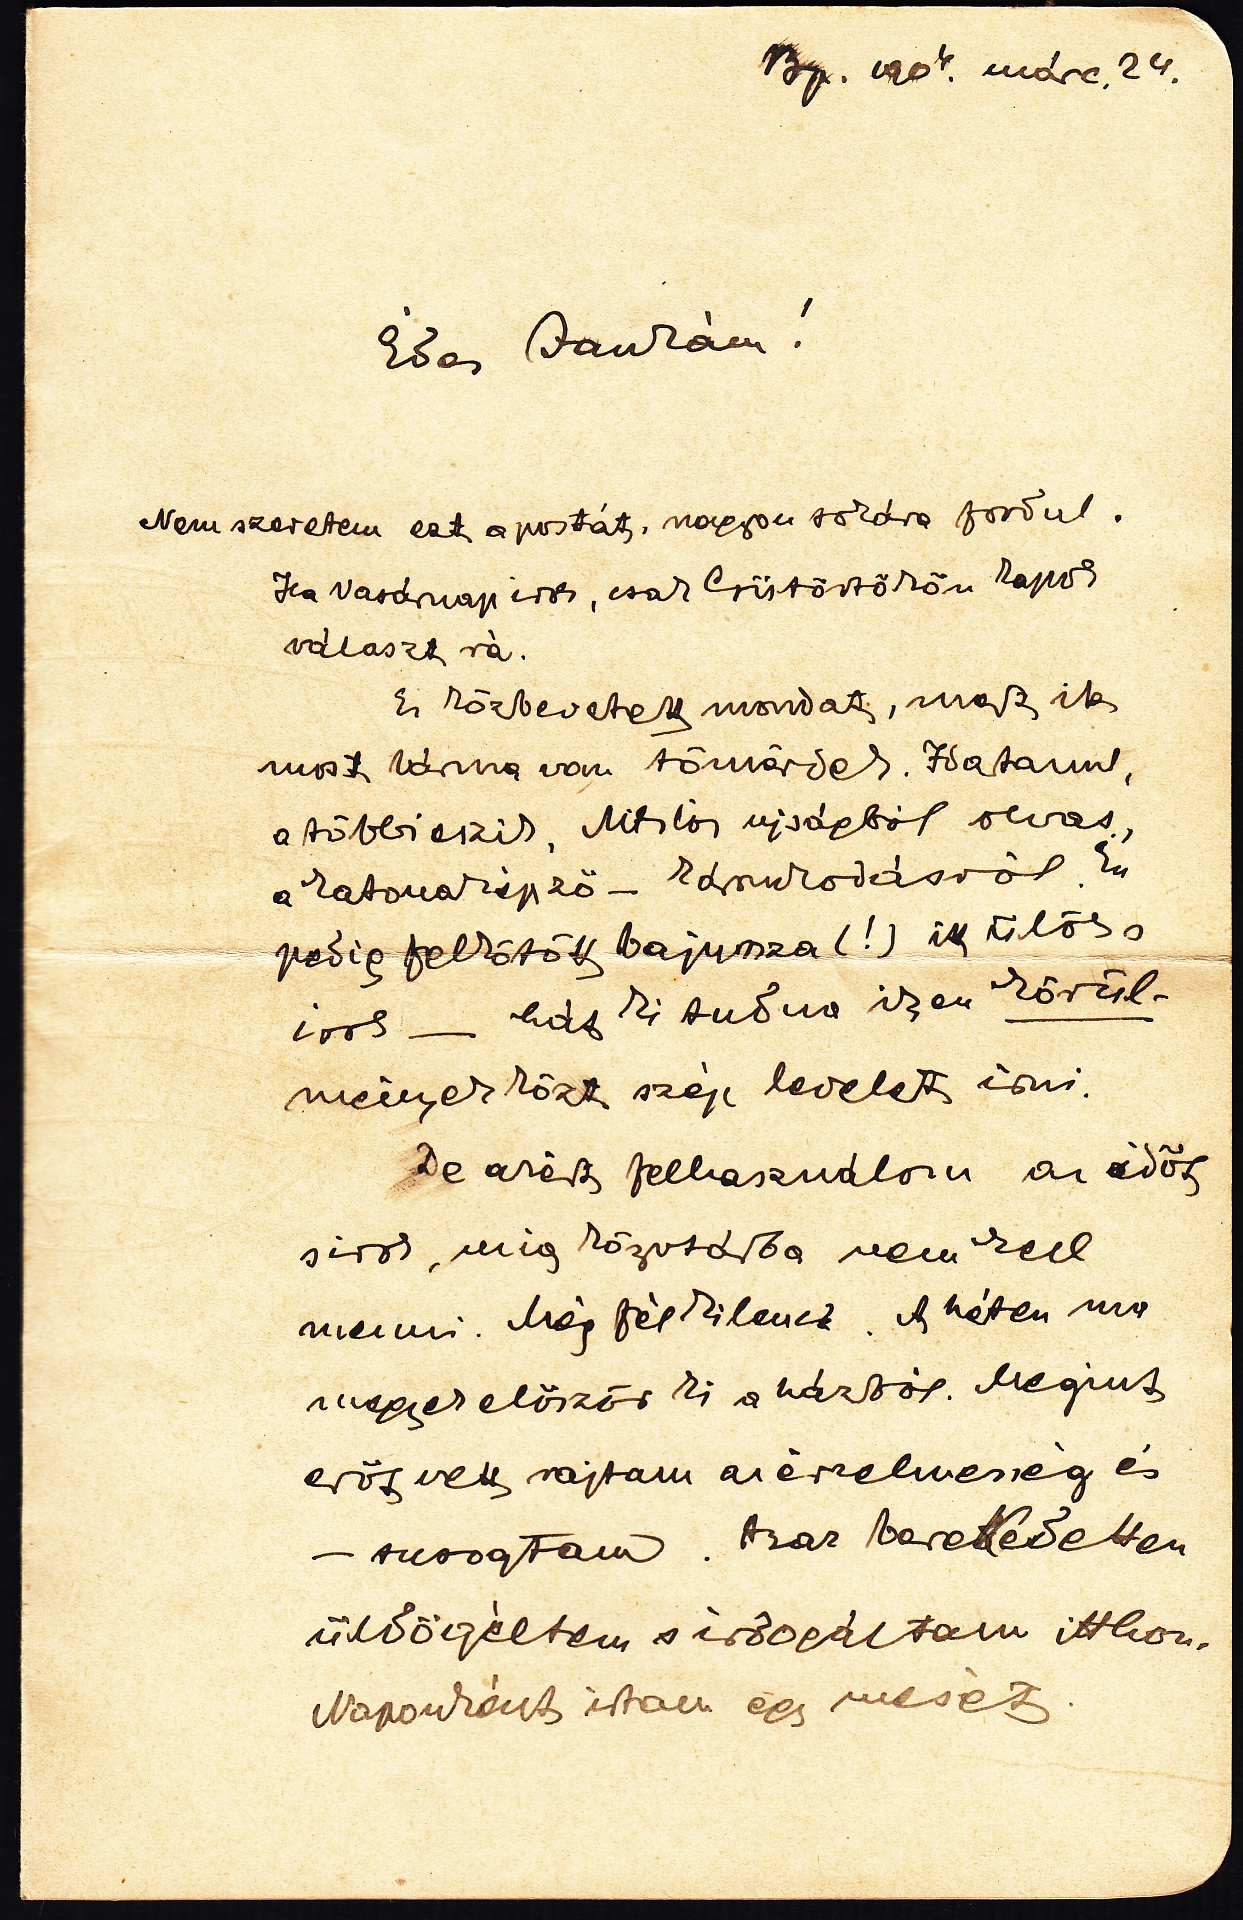 Bp. 1904. márc. 24.
Édes Jankám!
Nem szeretem ezt a postát, nagyon soká fordul.
Ha Vasárnap irok, csak Csütörtökön kapok
választ rá.
Ez közbevetett mondat, mert itt
most lárma van tömérdek.
a többi eszik, Miklós ujságból olvas,
a katonaképző – Én
pedig felkötött bajusszal (!) itt ülök s
irok — hát ki tudna ilyen körül-
mények közt szép levelet irni.
De azért felhasználom az időt
s irok, mig kórusba nem kell
menni. Még fél kilencz. A héten ma
megyek először ki a házból. Megint
erőt vett rajtam az érzelmesség és
– susogtam. Azaz berekedetten
üldögéltem s irdogáltam itthon.
Naponként irtam egy mesét.